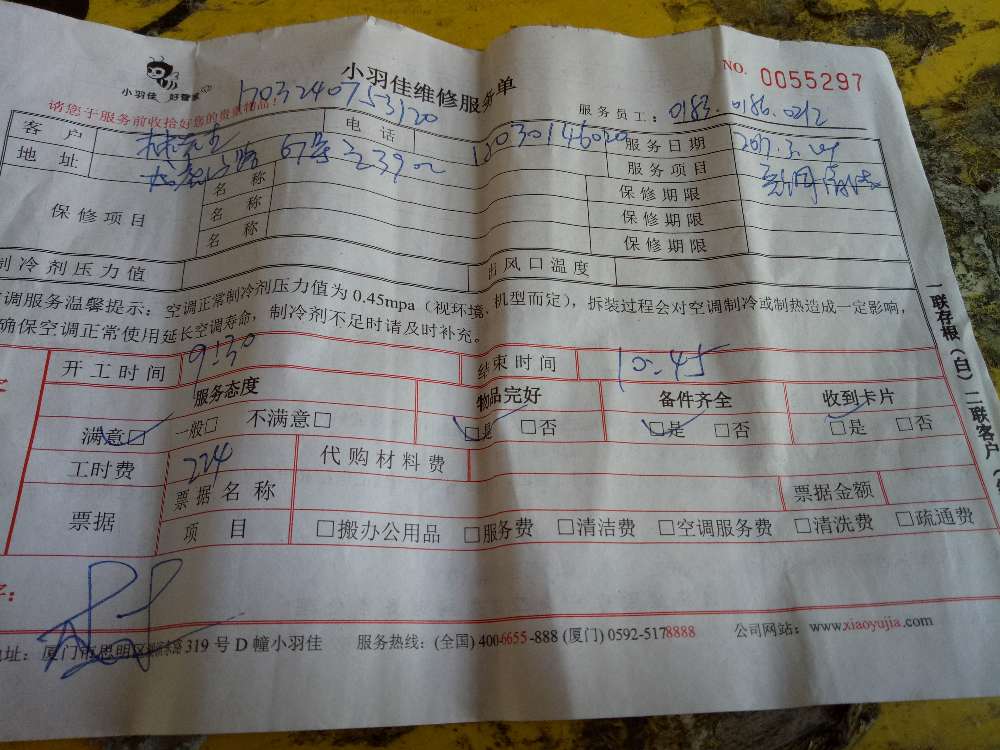 小羽佳 好管家
小羽佳维修服务单
NO. 0055297
请您于服务前收拾好您的贵重物品！
1703240753120
服务员工： 0183.0186.0212
客户 林先生 电话 服务日期 2017.3.24
地址 67号 服务项目 空调清洗
保修项目 名称 保修期限
名称 保修期限
名称 保修期限
制冷剂压力值 出风口温度
调服务温馨提示：空调正常制冷剂压力值为 0.45mpa（视环境、机型而定），拆装过程会对空调制冷或制热造成一定影响，
确保空调正常使用延长空调寿命，制冷剂不足时请及时补充。
开工时间 9:30 结束时间 10:45
服务态度 物品完好 备件齐全 收到卡片
满意□ 一般□ 不满意□ □是 □否 □是 □否 □是 □否
工时费 224 代购材料费
票据 票据名称 票据金额
项目 □搬办公用品 □服务费 □清洁费 □空调服务费 □清洗费 □疏通费
一联存根（白）二联客户
地址：厦门市思明区 319 号 D 幢小羽佳 服务热线：(全国) 400-6655-888 (厦门) 0592-5178888 公司网站：www.xiaoyujia.com